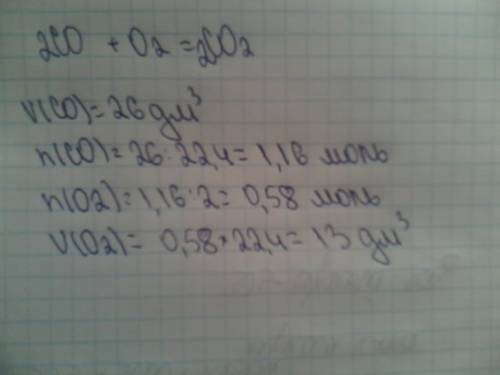 2CO + O2 = 2CO2
V(CO)= 26 дм³
n(CO)= 26:22,4= 1,16 моль
n(O2)= 1,16:2= 0,58 моль
V(O2)= 0,58*22,4= 13 дм³